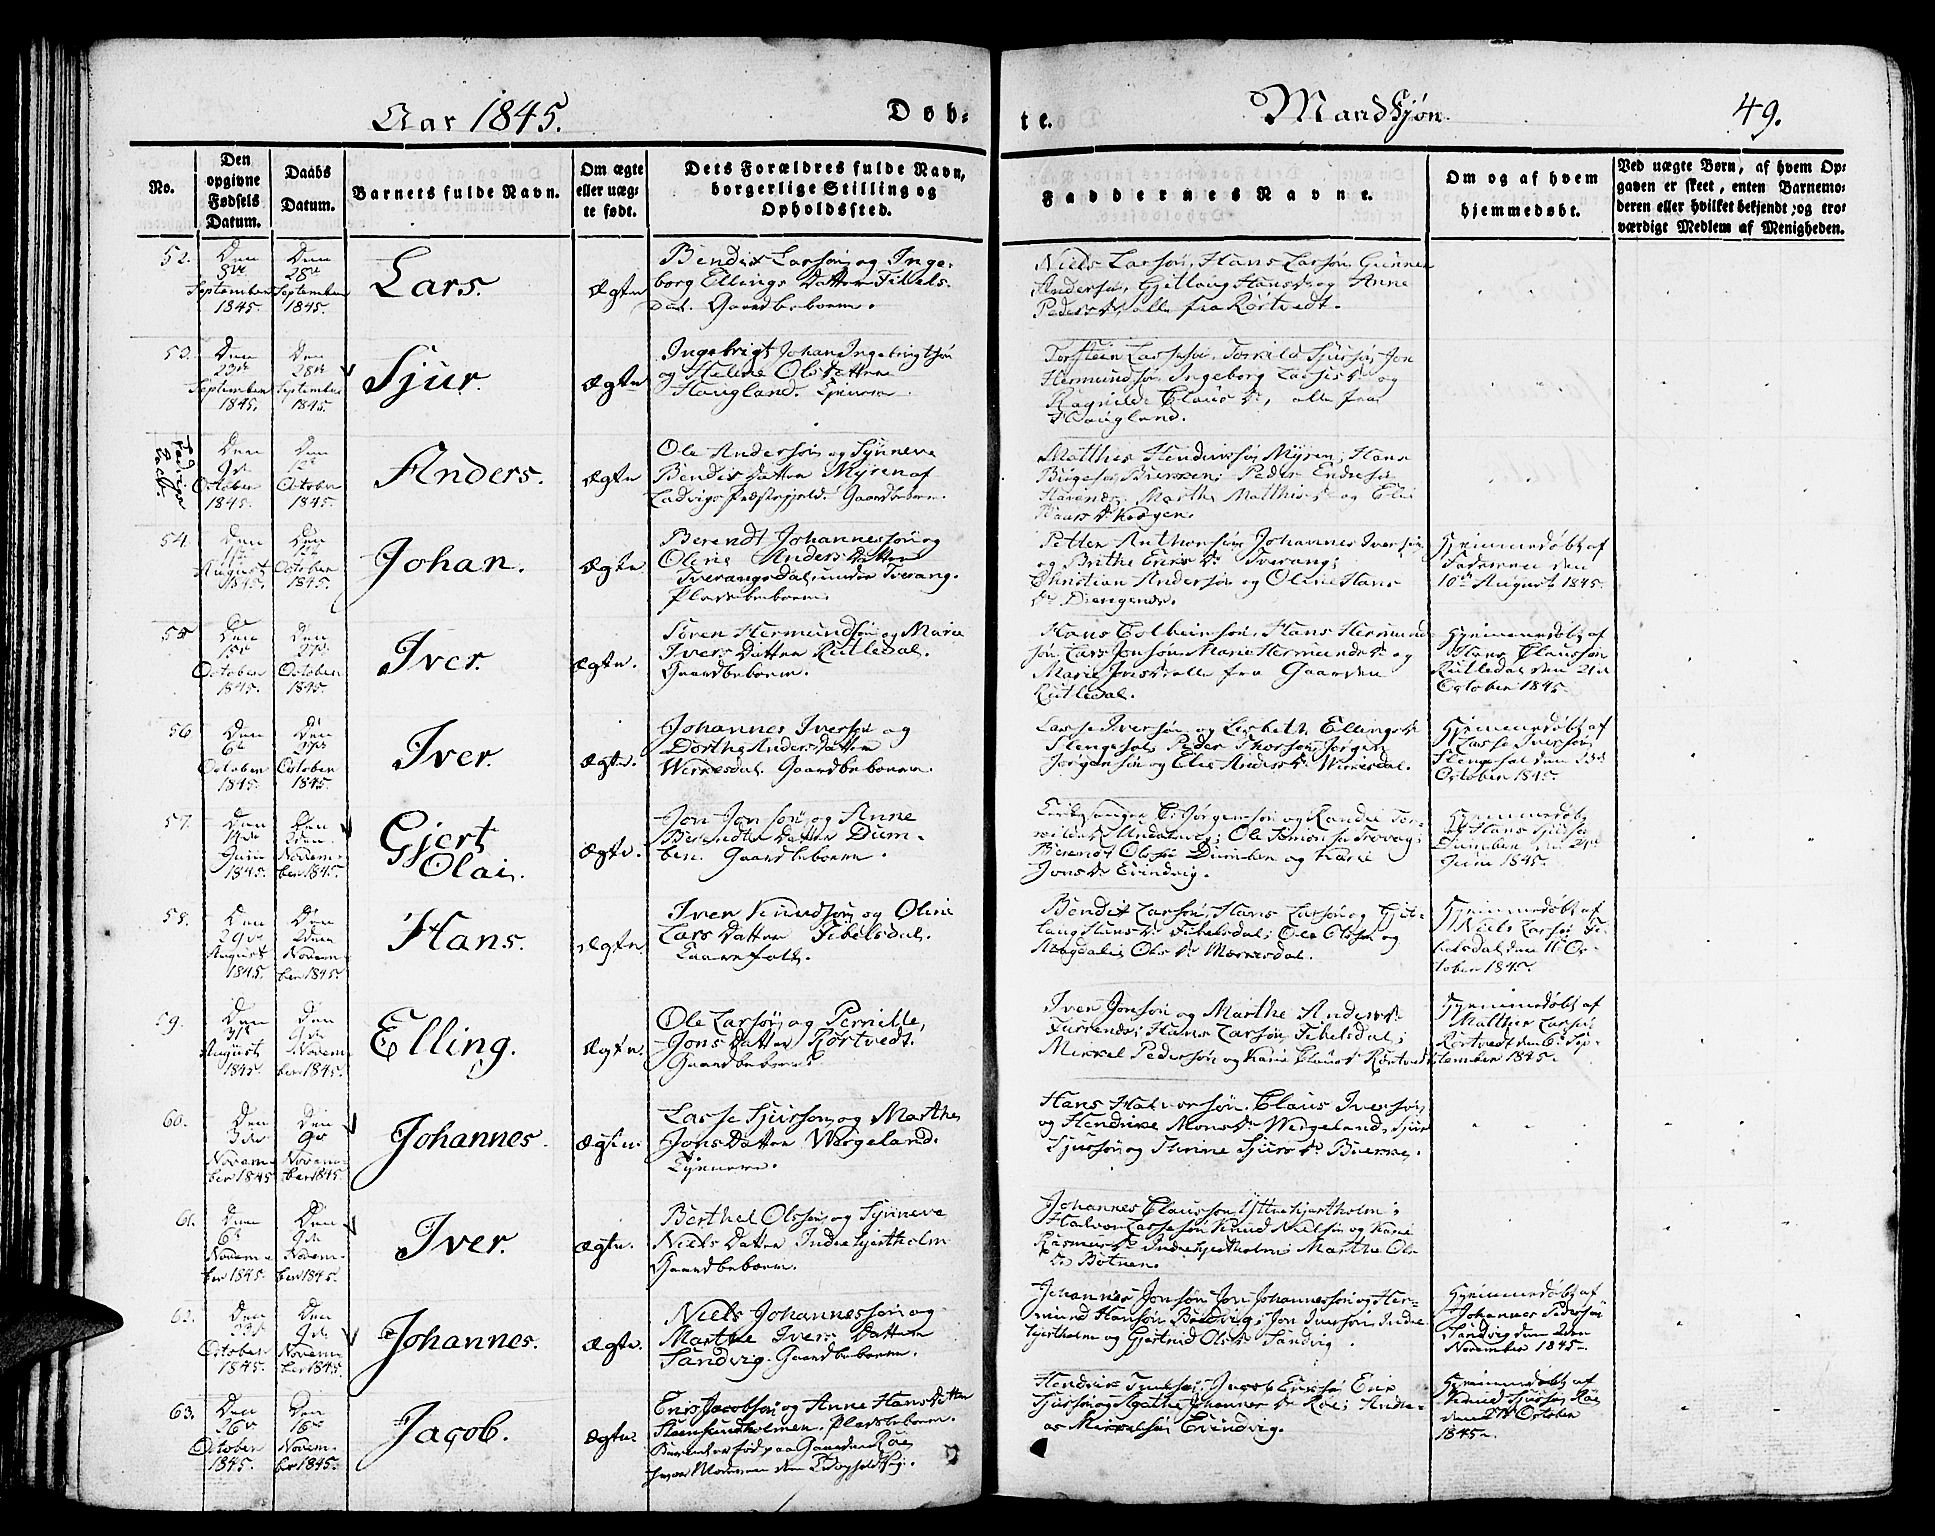 Aar 1845.
Döb-
te.
Mandkjøn.
49.
No.
Den
opgivne
Fødsels
Datum.
Daabs
Datum.
Barnets fulde Navn.
Om ægte
eller uæg-
te født.
Dets Forældres fulde Navn,
borgerlige Stilling og
Opholdssted.
Faddernes Navne.
Om og af hvem
hjemmedøbt.
Ved uægte Børn, af hvem Op-
gaven er skeet, enten Barnemo-
deren eller hvilket bekjendt og tro-
værdigt Medlem af Menigheden.
52.
Den
8de
September
1845.
Den
28de
September
1845.
Lars.
Ægte
Bendix Larsøn og Inge-
borg Ellings Datter Fibels-
dal. Gaardbeboere.
Niels Larsøn, Hans Larsøn, Gunner
Andersøn, Gjetlaug Hansdr og Anne
Pedersdr, alle fra Rørtvedt.
53.
Den
September
1845.
Den
28de
September
1845.
Sjur.
Ægte
Ingebrigt Johan Ingebrigtsøn
og Helene Ols Datter
Haugland. Tjenere.
Torstein Lassesøn, Torkild Sjursøn, Jon
Hermundsøn, Ingeborg Lassesdr og
Ragnilde Clausdr, alle fra
Haugland.
Den
9de
October
1845.
Den
12te
October
1845.
Anders.
Ægte
Ole Andersøn og Synneve
Bendix Datter Myren af
Ladvigs Præstegjeld. Gaardbeboere.
Matthis Hendriksøn Myren; Hans
Peder Endresøn
Marthe Matthisdr og Eli
54.
Den
August
1845.
Den
12te
October
1845.
Johan.
Ægte
Berendt Johannessøn og
Oline Anders Datter
Tverangsdal, under Tverang.
Pladsbeboere.
Petter Anthonsøn, Johannes Iversøn
og Brithe Ericsdr Tverang;
Christian Andersøn og Oline Hans
dr Diengenes.
Hjemmedøbt af
Faderen den
10de August 1845.
55
Den
October
1845.
Den
October
1845
Iver.
Ægte.
Søren Hermundsøn og Marie
Ivers Datter Rutledal.
Gaardbeboere.
Hans Colbeinsøn, Hans Hermund-
søn, Lars Jonsøn, Marie Hermundsdr og
Marie Jonsdr alle fra Gaarden
Rutledal.
Hjemmedøbt af
Hans Claussøn
Rutledal den 21de
October 1845.
56
Den
6te
October
1845.
Den
October
1845.
Iver.
Ægte.
Johannes Iversøn og
Dorthe Anders Datter
Werkesdal. Gaardbeboere.
Lasse Iversøn og Lisbeth Ellingsdr
Stengesal, Peder Thorsøn, Jørgen
Jørgensøn og Elie Andersdr Werkesdal.
Hjemmedøbt af
Lasse Iversøn
Stengesal den 23de
October 1845.
57.
Den
Juni
1845.
Den
2den
Novem-
ber 1845.
Gjert
Olai.
Ægte.
Jon Jonsøn og Anne
Berendte Datter Dum-
ben. Gaardbeboere.
Kirkesanger C. Jørgensøn og Randie
Berendt Olssøn Dumben og Karie
Jonsdr Evindvig.
Hjemmedøbt
af Hans Sjursøn
Dumben den 21de
Juni 1845.
58.
Den
29de
August
1845.
Den
2den
Novem-
ber 1845.
Hans.
Ægte.
Iver Knudsøn og Oline
Lars Datter Fibelsdal.
Kaarefolk.
Bendix Larsøn, Hans Larsøn og Gjet-
laug Hansdr Fibelsdal; Ole Olssøn og
Magdali Olsdr Mørkesdal.
Hjemmedøbt af
Niels Larsøn Fi-
belsdal den 11te Oc-
tober 1845.
59.
Den
31te
August
1845
Den
9de
Novem-
ber 1845.
Elling.
Ægte.
Ole Larsøn og Pernille
Jons Datter Rørtvedt.
Gaardbeboere.
Iver Jonsøn og Marthe Andersdr
Furenes; Hans Larsøn Fibelsdal;
Mikkel Pedersøn og Karie Clausdr Rørtvedt
Hjemmedøbt af
Matthis Larsøn
Rørtvedt den 6te Sep-
tember 1845.
60.
Den
3de
Novem-
ber 1845
Den
9de
Novem-
ber 1845.
Johannes.
Ægte.
Lasse Sjursøn og Marthe
Jons Datter Wergeland.
Tjenere.
Hans Halvorsøn, Claus Iversøn
og Hendrike Monsdr Wergeland, Sjur
Sjursøn og Thrine Sjursdr
61.
Den
6te
Novem-
ber 1845.
Den
9de
Novem-
ber 1845.
Iver.
Ægte.
Berthel Olssøn og Synneve
Niels Datter Indrehjertholm
Gaardbeboere.
Johannes Claussøn Yttrehjertholm;
Halvor Lassesøn, Knud Nielsøn og Karie
Rasmusdr Indrehjertholm; Marthe Ols
dr Botnen.
62.
Den
October
1845.
Den
9de
Novem-
ber 1845.
Johannes.
Ægte.
Niels Johannessøn og
Marthe Ivers Datter
Sandvig. Gaardbeboere.
Johannes Jonsøn, Jon Johannessøn og Her-
mund Hansøn Bredvig; Jon Iversøn Indre
hjertholm og Gjertrud Olsdr Sandvig.
Hjemmedøbt af
Johannes Pedersøn
Sandvig den 2den
November 1845.
63.
Den
26de
October
1845.
Den
16de
Novem-
ber 1845.
Jacob.
Ægte.
Eric Jacobsøn og Anne Hans Datter
Steensundholmen. Pladsbeboere.
Barnet er født paa Gaarden Røe,
hvor Moderen
Jacob Ericsøn, Eric
Sjursøn og Agathe Johannesdr Røe; Andre-
as Mikkelsøn Evindvig.
Hjemmedøbt af
Knud Sjursøn Røe
den 27de October
1845.